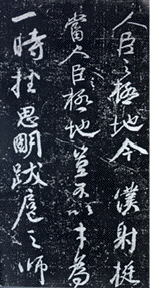 人臣之極地今僕射挺
當人臣極地豈不以才為
一時挫思明跋扈之師